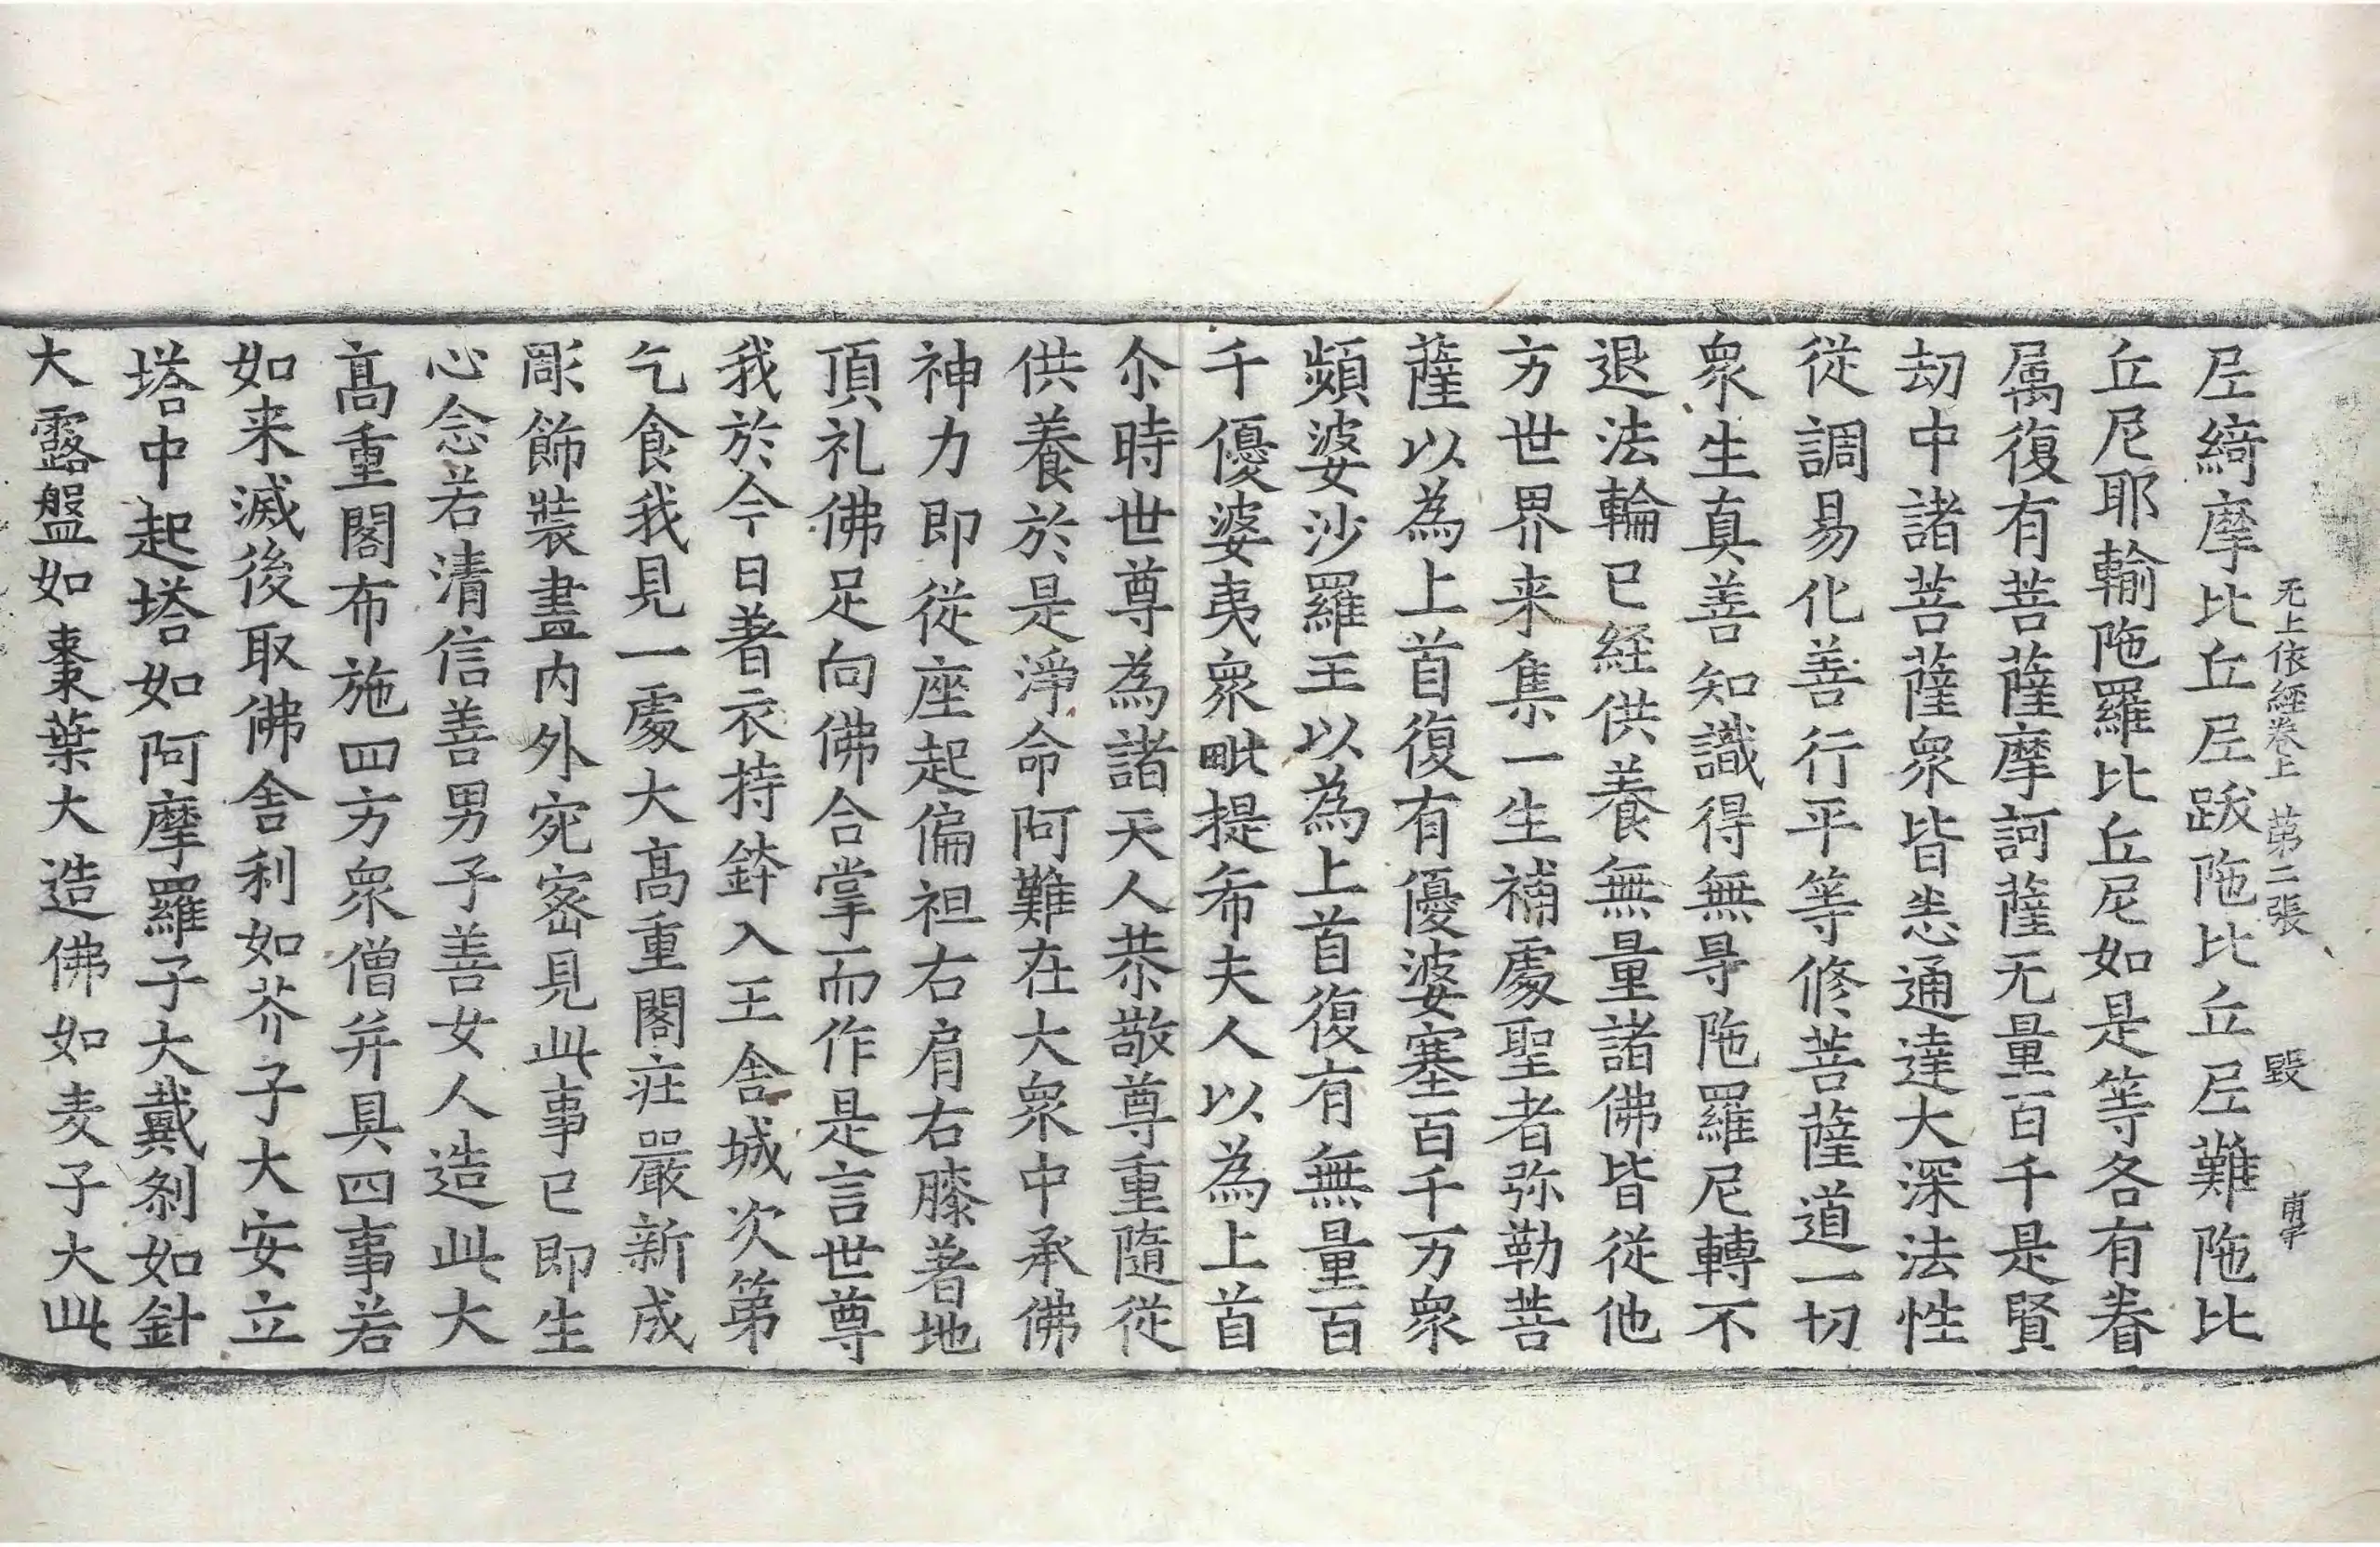 无上依經卷上 第二張 毀
尼綺摩比丘尼跋陁比丘尼難陁比
丘尼耶輸陁羅比丘尼如是等各有眷
属復有菩薩摩訶薩无量百千是賢
劫中諸菩薩衆皆悉通達大深法性
從調易化善行平等修菩薩道一切
衆生真善知識得無㝵陁羅尼轉不
退法輪已経供養無量諸佛皆從他
方世界来集一生補處聖者弥勒菩
薩以為上首復有優婆塞百千万衆
頻婆沙羅王以為上首復有無量百
千優婆夷衆毗提希夫人以為上首
尒時世尊為諸天人恭敬尊重隨從
供養於是淨命阿難在大衆中承佛
神力即從座起偏袒右肩右膝著地
頂礼佛足向佛合掌而作是言世尊
我於今日著衣持鉢入王舍城次第
乞食我見一處大髙重閣莊嚴新成
彫飾裝畫内外宛密見此事已即生
心念若清信善男子善女人造此大
髙重閣布施四方衆僧并具四事若
如来滅後取佛舍利如芥子大安立
塔中起塔如阿摩羅子大戴刹如針
大露盤如棗葉大造佛如麦子大此